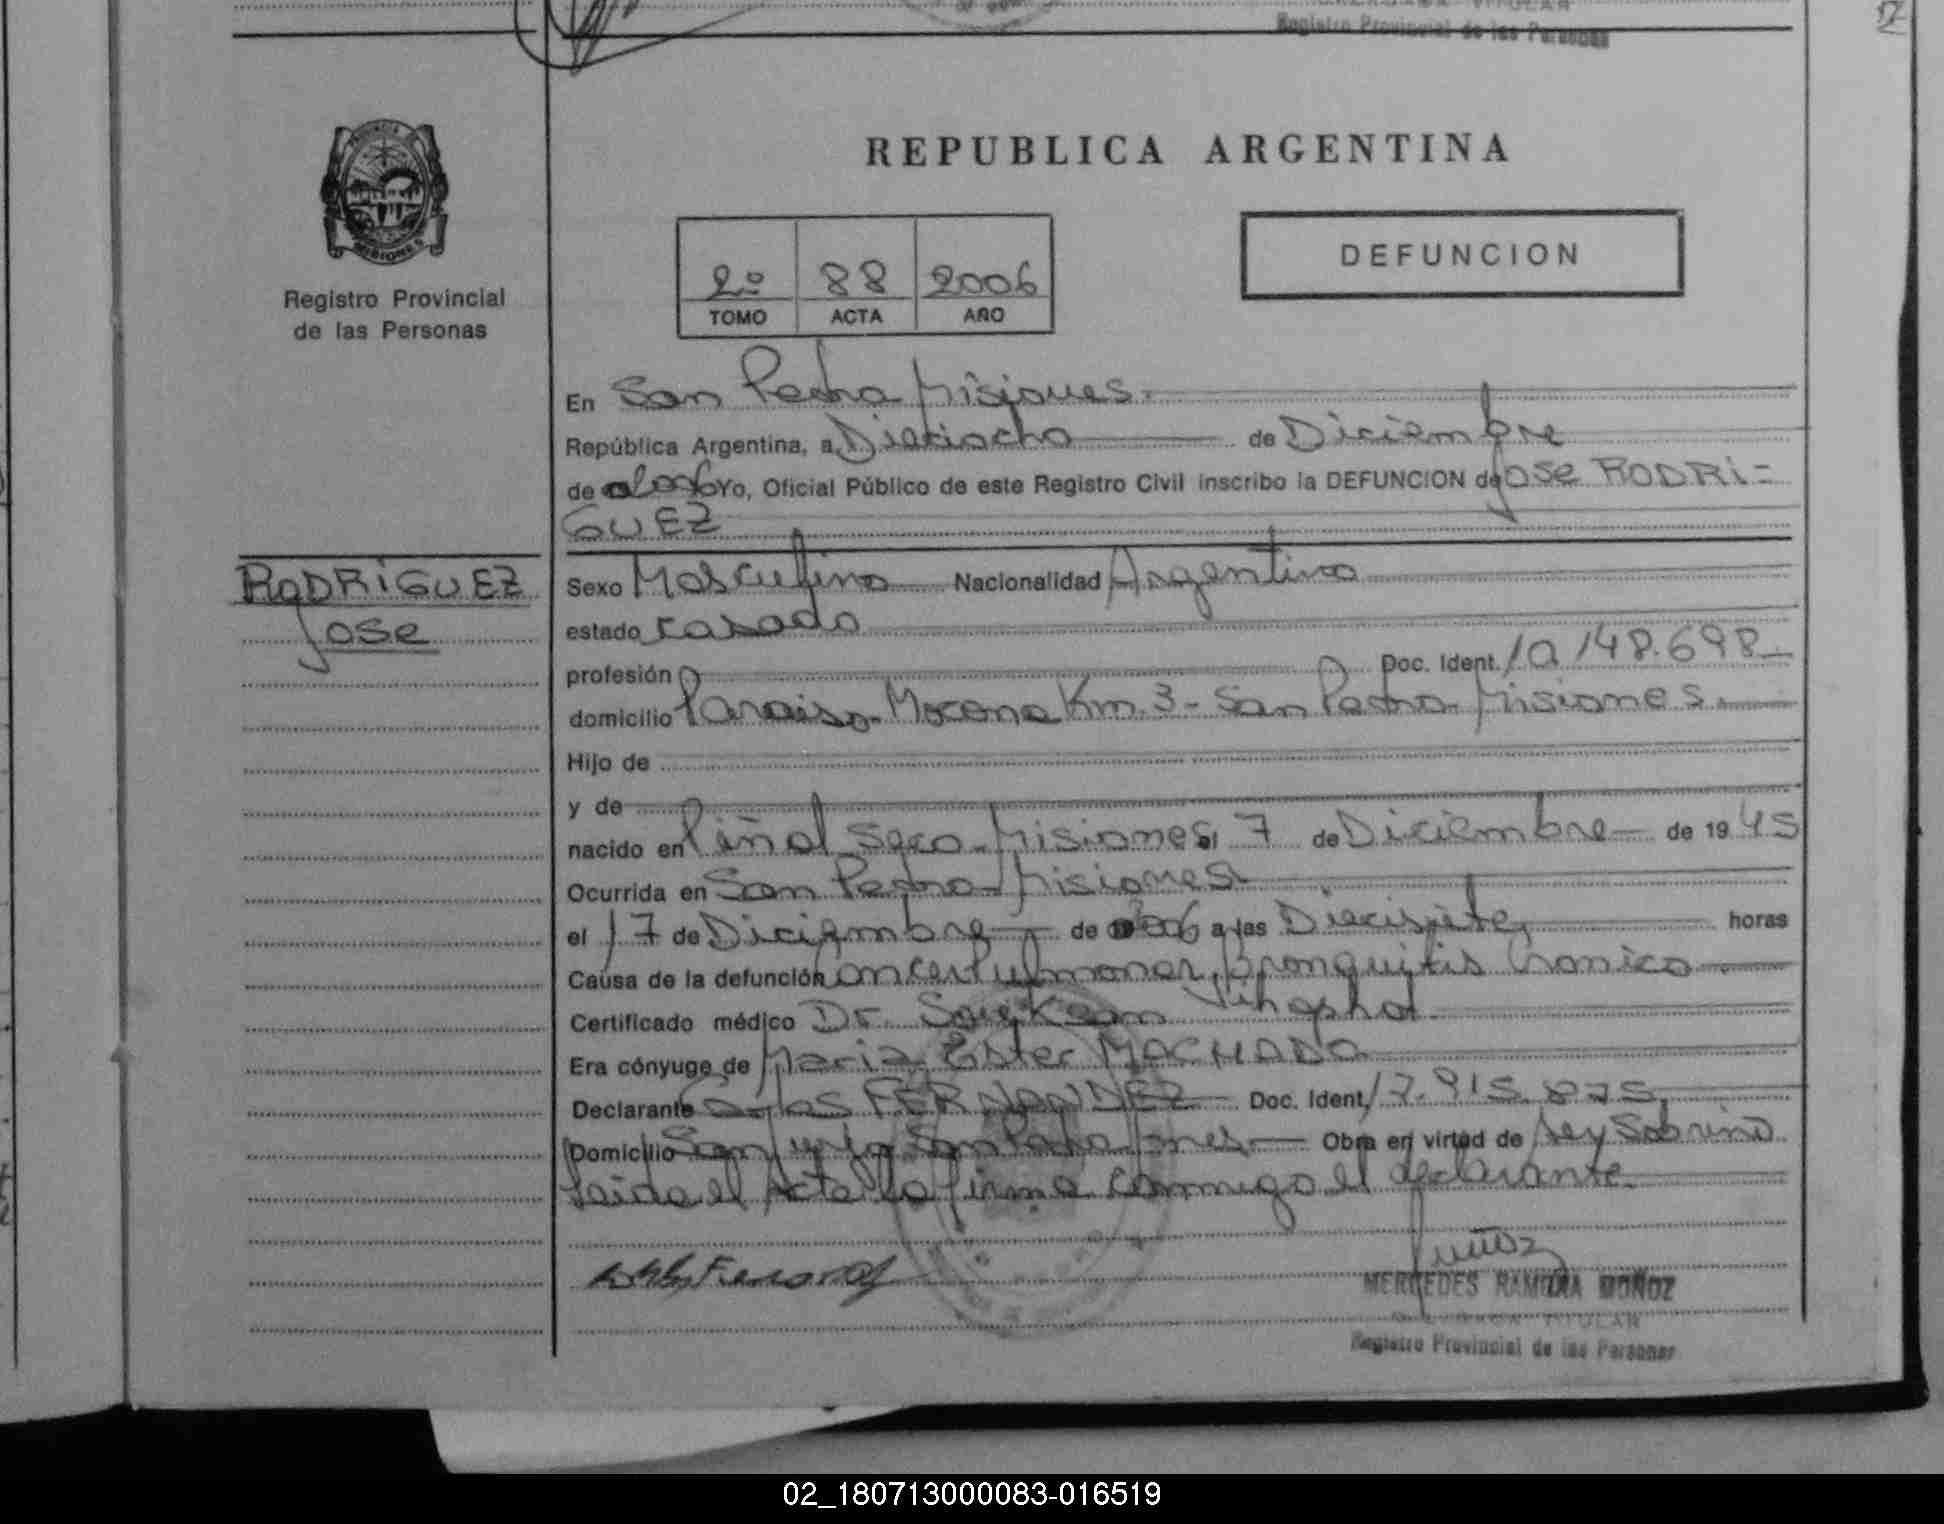 Registro Provincial de las Personas
REPUBLICA ARGENTINA
MISIONES
Registro Provincial
de las Personas
2º 88 2006
TOMO ACTA AÑO
DEFUNCION
En San Pedro Misiones
República Argentina, a Dieciocho de Diciembre
de 2006 Yo, Oficial Público de este Registro Civil inscribo la DEFUNCION de Jose RODRI-
GUEZ
RODRIGUEZ
Jose
Sexo Masculino Nacionalidad Argentino
estado casado
profesión Doc. Ident. 10.148.698
domicilio Paraiso-Mocona Km.3-San Pedro-Misiones.
Hijo de
y de
nacido en Piñal Seco-Misiones el 7 de Diciembre de 1945
Ocurrida en San Pedro-Misiones
el 17 de Diciembre de 2006 a las Diecisiete horas
Causa de la defunción Cancer Pulmonar, Bronquitis Cronica
Certificado médico Dr.
Era cónyuge de Maria Ester MACHADO
Declarante Carlos FERNANDEZ Doc. Ident. 17.915.875
Domicilio San Pedro Mnes. Obra en virtud de Ley Sobrino
Leida el Acta la firma conmigo el declarante.
Muñoz
MERCEDES RAMONA MUÑOZ
TITULAR
Registro Provincial de las Personas
02_180713000083-016519